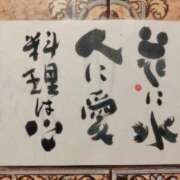 花に水
人に愛
料理は心